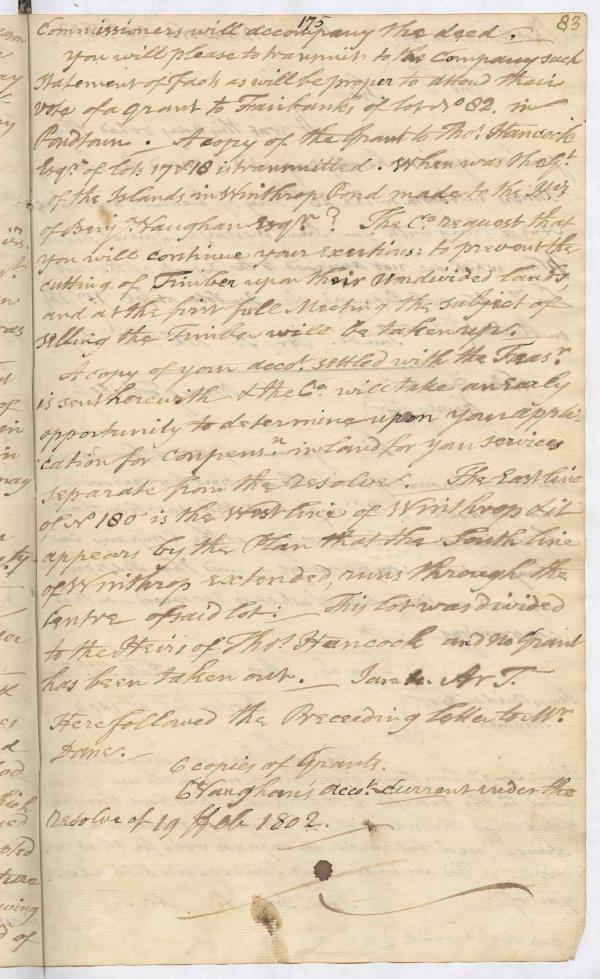 175
83
Commissioners will accompany the deed.
You will please to transmit to the Company such
Statement of facts as will be proper to attend their
Vote of a grant to Fairbanks of lot No 82. in
Pondtown. A copy of the Grant to Thos. Hancock
Esqr. of lots 17 & 18 is transmitted. When was the
of the Islands in Winthrop Pond made to the
of Benjn. Vaughan Esqr.? The Co. request that
you will continue your exertions to prevent the
cutting of Timber upon their undivided lands,
and at the first full Meeting the subject of
selling the Timber will be taken up.
A copy of your accot. settled with the Treasr.
is sent herewith & the Co. will take an early
opportunity to determine upon your appli-
cation for compensn. in land for your services
separate from the resolve. The East line
of No 180 is the West line of Winthrop & it
appears by the Plan that the South line
of Winthrop extended, runs through the
Centre of said lot: This lot was divided
to the Heirs of Thos. Hancock and no Grant
has been taken out. I am &c. Ar T.
Here followed the Preceeding letter to Mr.
Dane.
6 copies of Grants.
C Vaughan's accot. current under the
resolve of 19 ffeb 1802.